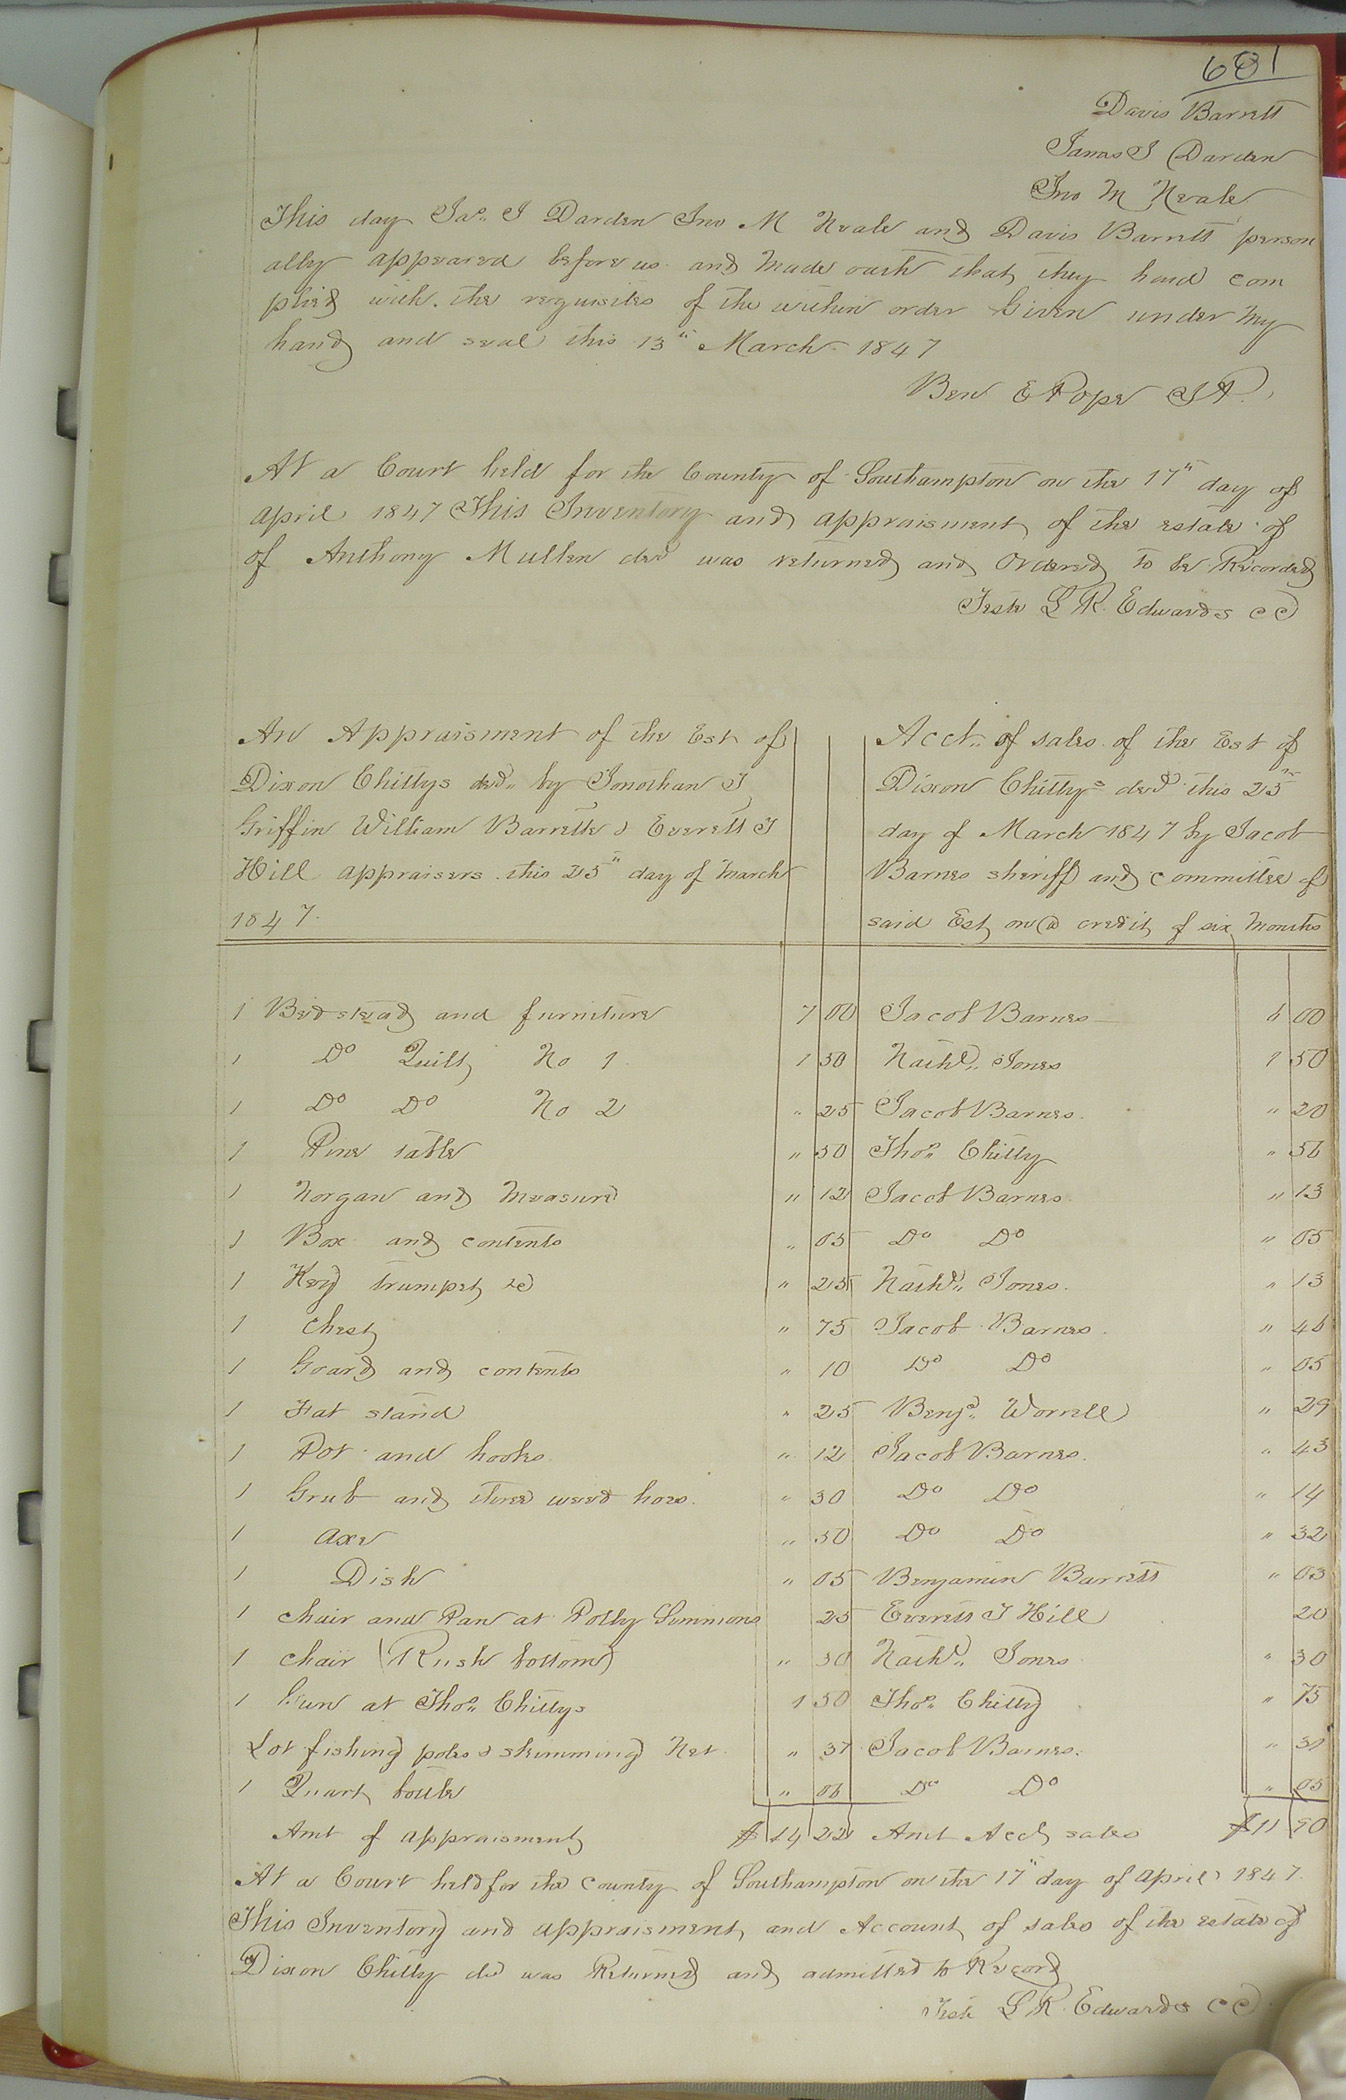 601
Davis Barrett
James J Darden
Jno M Neale
This day Jas. J Darden Jno M Neale and Davis Barrett person
ally appeared before us and made oath that they had com
plied with the requisites of the within order Given under my
hand and seal this 13th March 1847
Ben E Pope J P.
At a Court held for the County of Southampton on the 17th day of
April 1847 This Inventory and appraisment of the estate of
of Anthony Mullen decd was returned and Ordered to be Recorded
Teste L R. Edwards CC
An Appraisment of the Est of
Dixon Chittys decd. by Jonathan J
Griffin William Barrette & Everett J
Hill appraisers this 25th day of March
1847.
Acct. of sales of the Est of
Dixon Chittys decd this 25th
day of March 1847 by Jacob
Barnes sheriff and committee of
said Est on a credit of six months
1 Bedstead and furniture 7 00 Jacob Barnes 6 00
1 Do Quilt No 1 1 50 Nathl. Jones 1 50
1 Do Do No 2 " 25 Jacob Barnes. " 20
1 Pine table " 50 Thos. Chitty " 56
1 Norgan and Measure " 12 Jacob Barnes. " 13
1 Box and contents " 05 Do Do " 05
1 Keg trumpet &c " 25 Nathl. Jones. " 13
1 Chest " 75 Jacob Barnes. " 46
1 Goard and contents " 10 Do Do " 05
1 Fat stand " 25 Benjn. Worrell " 29
1 Pot and hooks " 12 Jacob Barnes. " 43
1 Grub and three weed hoes. " 30 Do Do " 14
1 Axe " 50 Do Do " 32
1 Dish " 05 Benjamin Barrett " 03
1 Chair and Pan at Polly Simmons 25 Everett J Hill 20
1 Chair (Rush bottom) " 30 Nathl. Jones " 30
1 Gun at Thos. Chittys 1 50 Thos. Chitty " 75
Lot fishing poles & skimming Net " 37 Jacob Barnes. " 31
1 Quart bottle " 06 Do Do " 05
Amt of appraisment $ 14 22 Amt Acct sales $ 11 90
At a Court held for the county of Southampton on the 17th day of April 1847.
This Inventory and appraisment and Account of sales of the estate of
Dixon Chitty decd was Returned and admitted to Record
Teste L R. Edwards CC